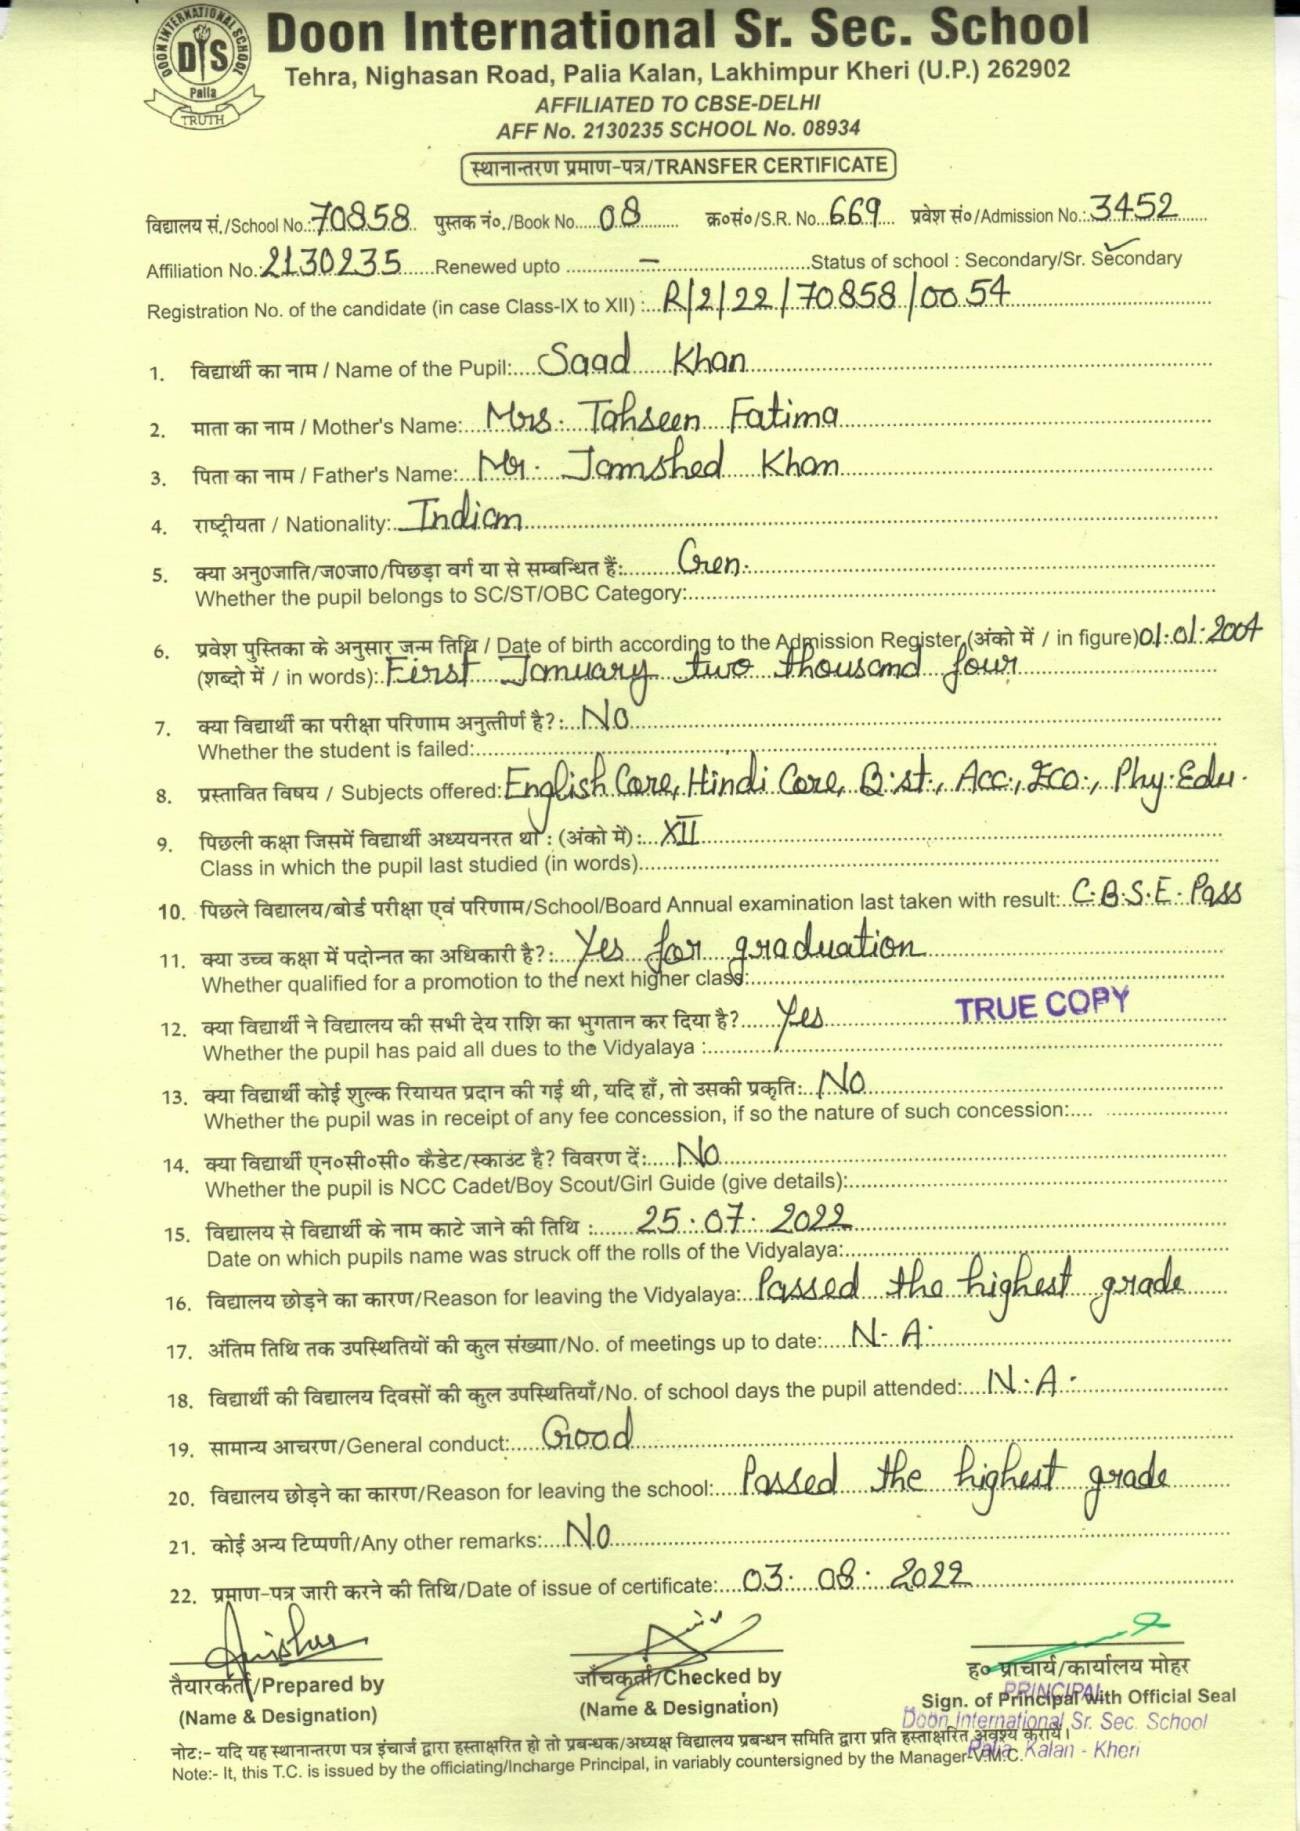 DOON INTERNATIONAL SCHOOL
DIS
Palia
TRUTH
Doon International Sr. Sec. School
Tehra, Nighasan Road, Palia Kalan, Lakhimpur Kheri (U.P.) 262902
AFFILIATED TO CBSE-DELHI
AFF No. 2130235 SCHOOL No. 08934
स्थानान्तरण प्रमाण-पत्र/TRANSFER CERTIFICATE
विद्यालय सं./School No.: 70858 पुस्तक नं०./Book No. 08 क्र०सं०/S.R. No. 669 प्रवेश सं०/Admission No.: 3452
Affiliation No.: 2130235 Renewed upto – Status of school : Secondary/Sr. Secondary
Registration No. of the candidate (in case Class-IX to XII) : R/2/22/70858/0054
1. विद्यार्थी का नाम / Name of the Pupil: Saad Khan
2. माता का नाम / Mother's Name: Mrs. Tahseen Fatima
3. पिता का नाम / Father's Name: Mr. Jamshed Khan
4. राष्ट्रीयता / Nationality: Indian
5. क्या अनु०जाति/ज०जा०/पिछड़ा वर्ग या से सम्बन्धित हैं: Gen.
Whether the pupil belongs to SC/ST/OBC Category:
6. प्रवेश पुस्तिका के अनुसार जन्म तिथि / Date of birth according to the Admission Register (अंको में / in figure) 01.01.2004
(शब्दो में / in words): First January two thousand four
7. क्या विद्यार्थी का परीक्षा परिणाम अनुत्तीर्ण है?: No
Whether the student is failed:
8. प्रस्तावित विषय / Subjects offered: English Core, Hindi Core, B.st., Acc., Eco., Phy. Edu.
9. पिछली कक्षा जिसमें विद्यार्थी अध्ययनरत था : (अंको में): XII
Class in which the pupil last studied (in words)
10. पिछले विद्यालय/बोर्ड परीक्षा एवं परिणाम/School/Board Annual examination last taken with result: C.B.S.E. Pass
11. क्या उच्च कक्षा में पदोन्नत का अधिकारी है?: Yes for graduation
Whether qualified for a promotion to the next higher class:
12. क्या विद्यार्थी ने विद्यालय की सभी देय राशि का भुगतान कर दिया है? Yes TRUE COPY
Whether the pupil has paid all dues to the Vidyalaya :
13. क्या विद्यार्थी कोई शुल्क रियायत प्रदान की गई थी, यदि हाँ, तो उसकी प्रकृति: No
Whether the pupil was in receipt of any fee concession, if so the nature of such concession:
14. क्या विद्यार्थी एन०सी०सी० कैडेट/स्काउट है? विवरण दें: No
Whether the pupil is NCC Cadet/Boy Scout/Girl Guide (give details):
15. विद्यालय से विद्यार्थी के नाम काटे जाने की तिथि : 25.07.2022
Date on which pupils name was struck off the rolls of the Vidyalaya:
16. विद्यालय छोड़ने का कारण/Reason for leaving the Vidyalaya: Passed the highest grade
17. अंतिम तिथि तक उपस्थितियों की कुल संख्या/No. of meetings up to date: N.A.
18. विद्यार्थी की विद्यालय दिवसों की कुल उपस्थितियाँ/No. of school days the pupil attended: N.A.
19. सामान्य आचरण/General conduct: Good
20. विद्यालय छोड़ने का कारण/Reason for leaving the school: Passed the highest grade
21. कोई अन्य टिप्पणी/Any other remarks: No
22. प्रमाण-पत्र जारी करने की तिथि/Date of issue of certificate: 03.08.2022
तैयारकर्ता/Prepared by जाँचकर्ता/Checked by ह० प्राचार्य/कार्यालय मोहर
(Name & Designation) (Name & Designation) Sign. of Principal With Official Seal
PRINCIPAL
Doon International Sr. Sec. School
Palia Kalan - Kheri
नोट:- यदि यह स्थानान्तरण पत्र इंचार्ज द्वारा हस्ताक्षरित हो तो प्रबन्धक/अध्यक्ष विद्यालय प्रबन्धन समिति द्वारा प्रति हस्ताक्षरित अवश्य करायें।
Note:- It, this T.C. is issued by the officiating/Incharge Principal, in variably countersigned by the Manager-V.M.C.